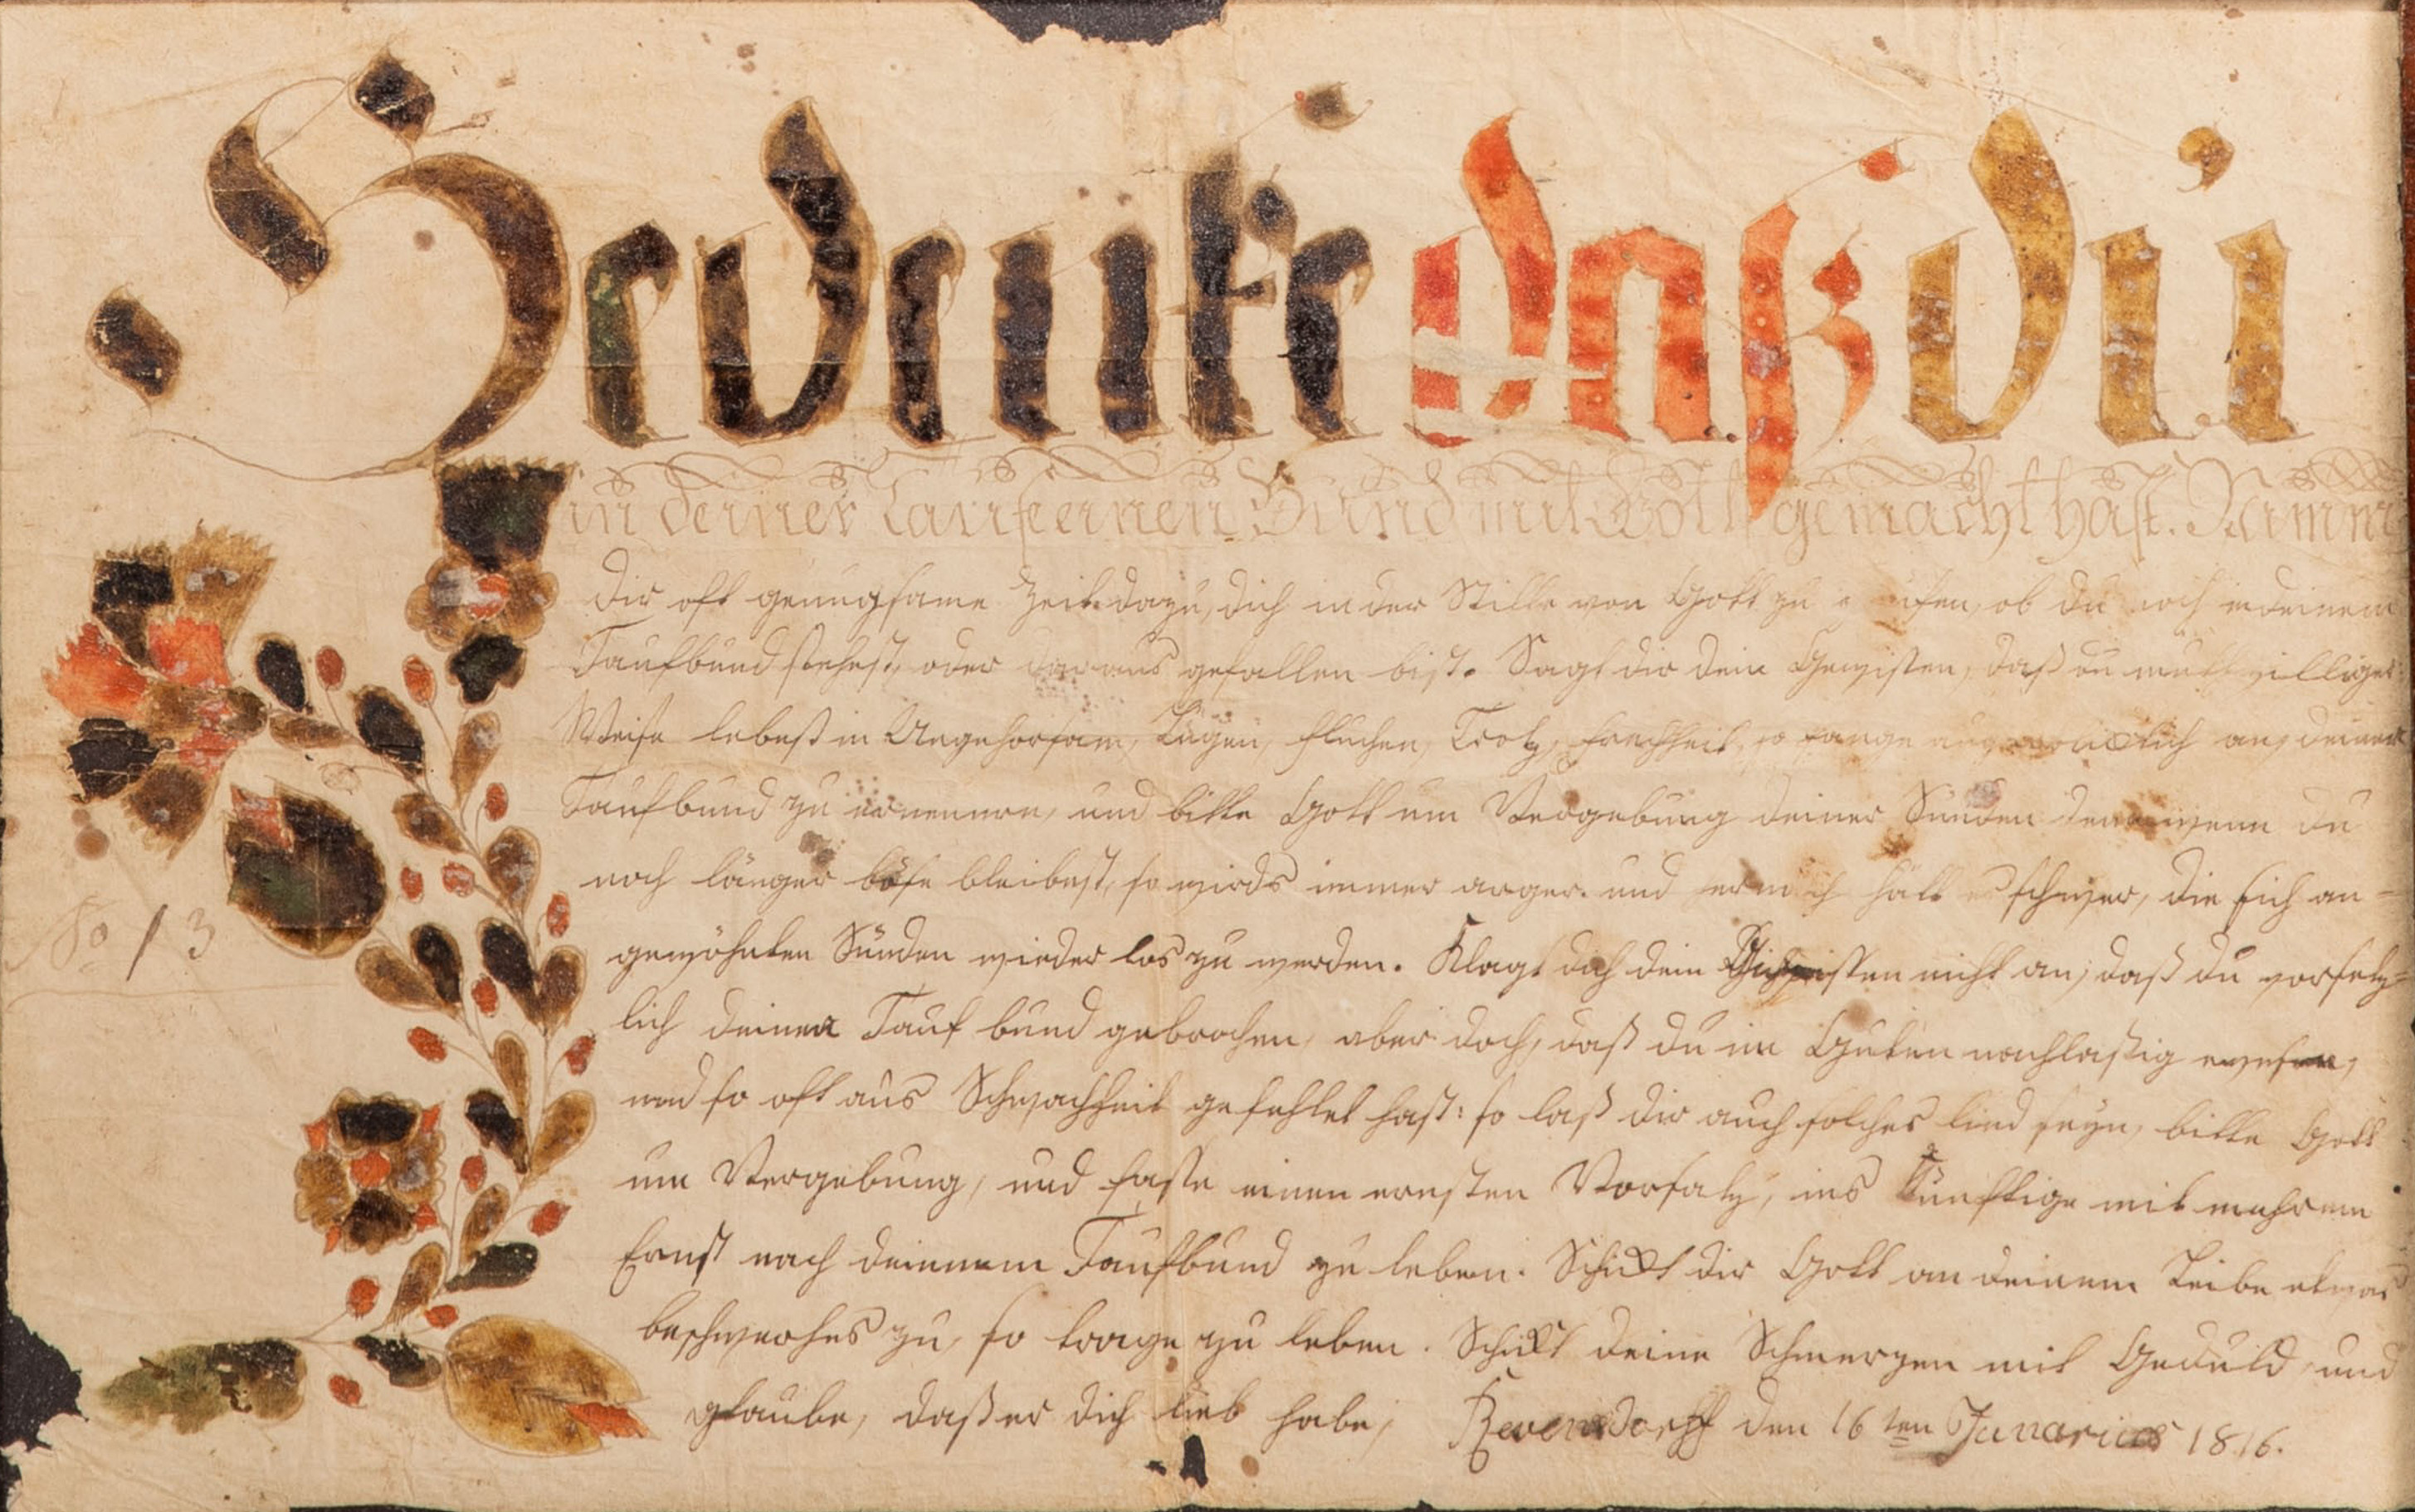 Gedenke daß du
in deiner Taufe einen Bund mit Gott gemacht hast. Nimm
dir oft genugsame Zeit dazu, dich in der Stille von Gott zu ob du noch in deinem
Taufbund stehest, oder daraus gefallen bist. Sagt dir dein Gewissen, daß du muthwilliger
Weise lebest in Ungehorsam, Lügen, Fluchen, Trotz, Frechheit, so fange augenblicklich an, deinen
Taufbund zu erneuern, und bitte Gott um Vergebung deiner Sünden denn wenn du
noch länger böse bleibest, so wirds immer arger. und hält es schwer, die sich an-
gewöhnten Sünden wieder los zu werden. Klagt dich dein Gewissen nicht an, daß du vorsetz-
lich deinen Tauf bund gebrochen, aber doch, daß du im Guten nachlaßig
und so oft aus Schwachheit gefehlet hast: so laß dir auch solches leid seyn, bitte Gott
um Vergebung, und fasse einen ernsten Vorsatz, ins künftige mit mehrem
Ernst nach deinem Taufbund zu leben. Schikt dir Gott an deinem Leibe etwas
beschwerhes zu, so trage zu leben. Schikt deine Schmerzen mit Geduld, und
glaube, daß er dich lieb habe, den 16ten Januarius 1816.
No 13